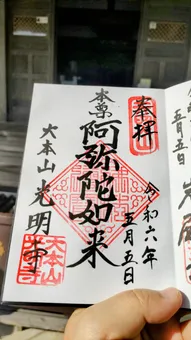 奉拝
令和六年
五月五日
本尊
阿弥陀如来
大本山光明寺
大本山
五月五日